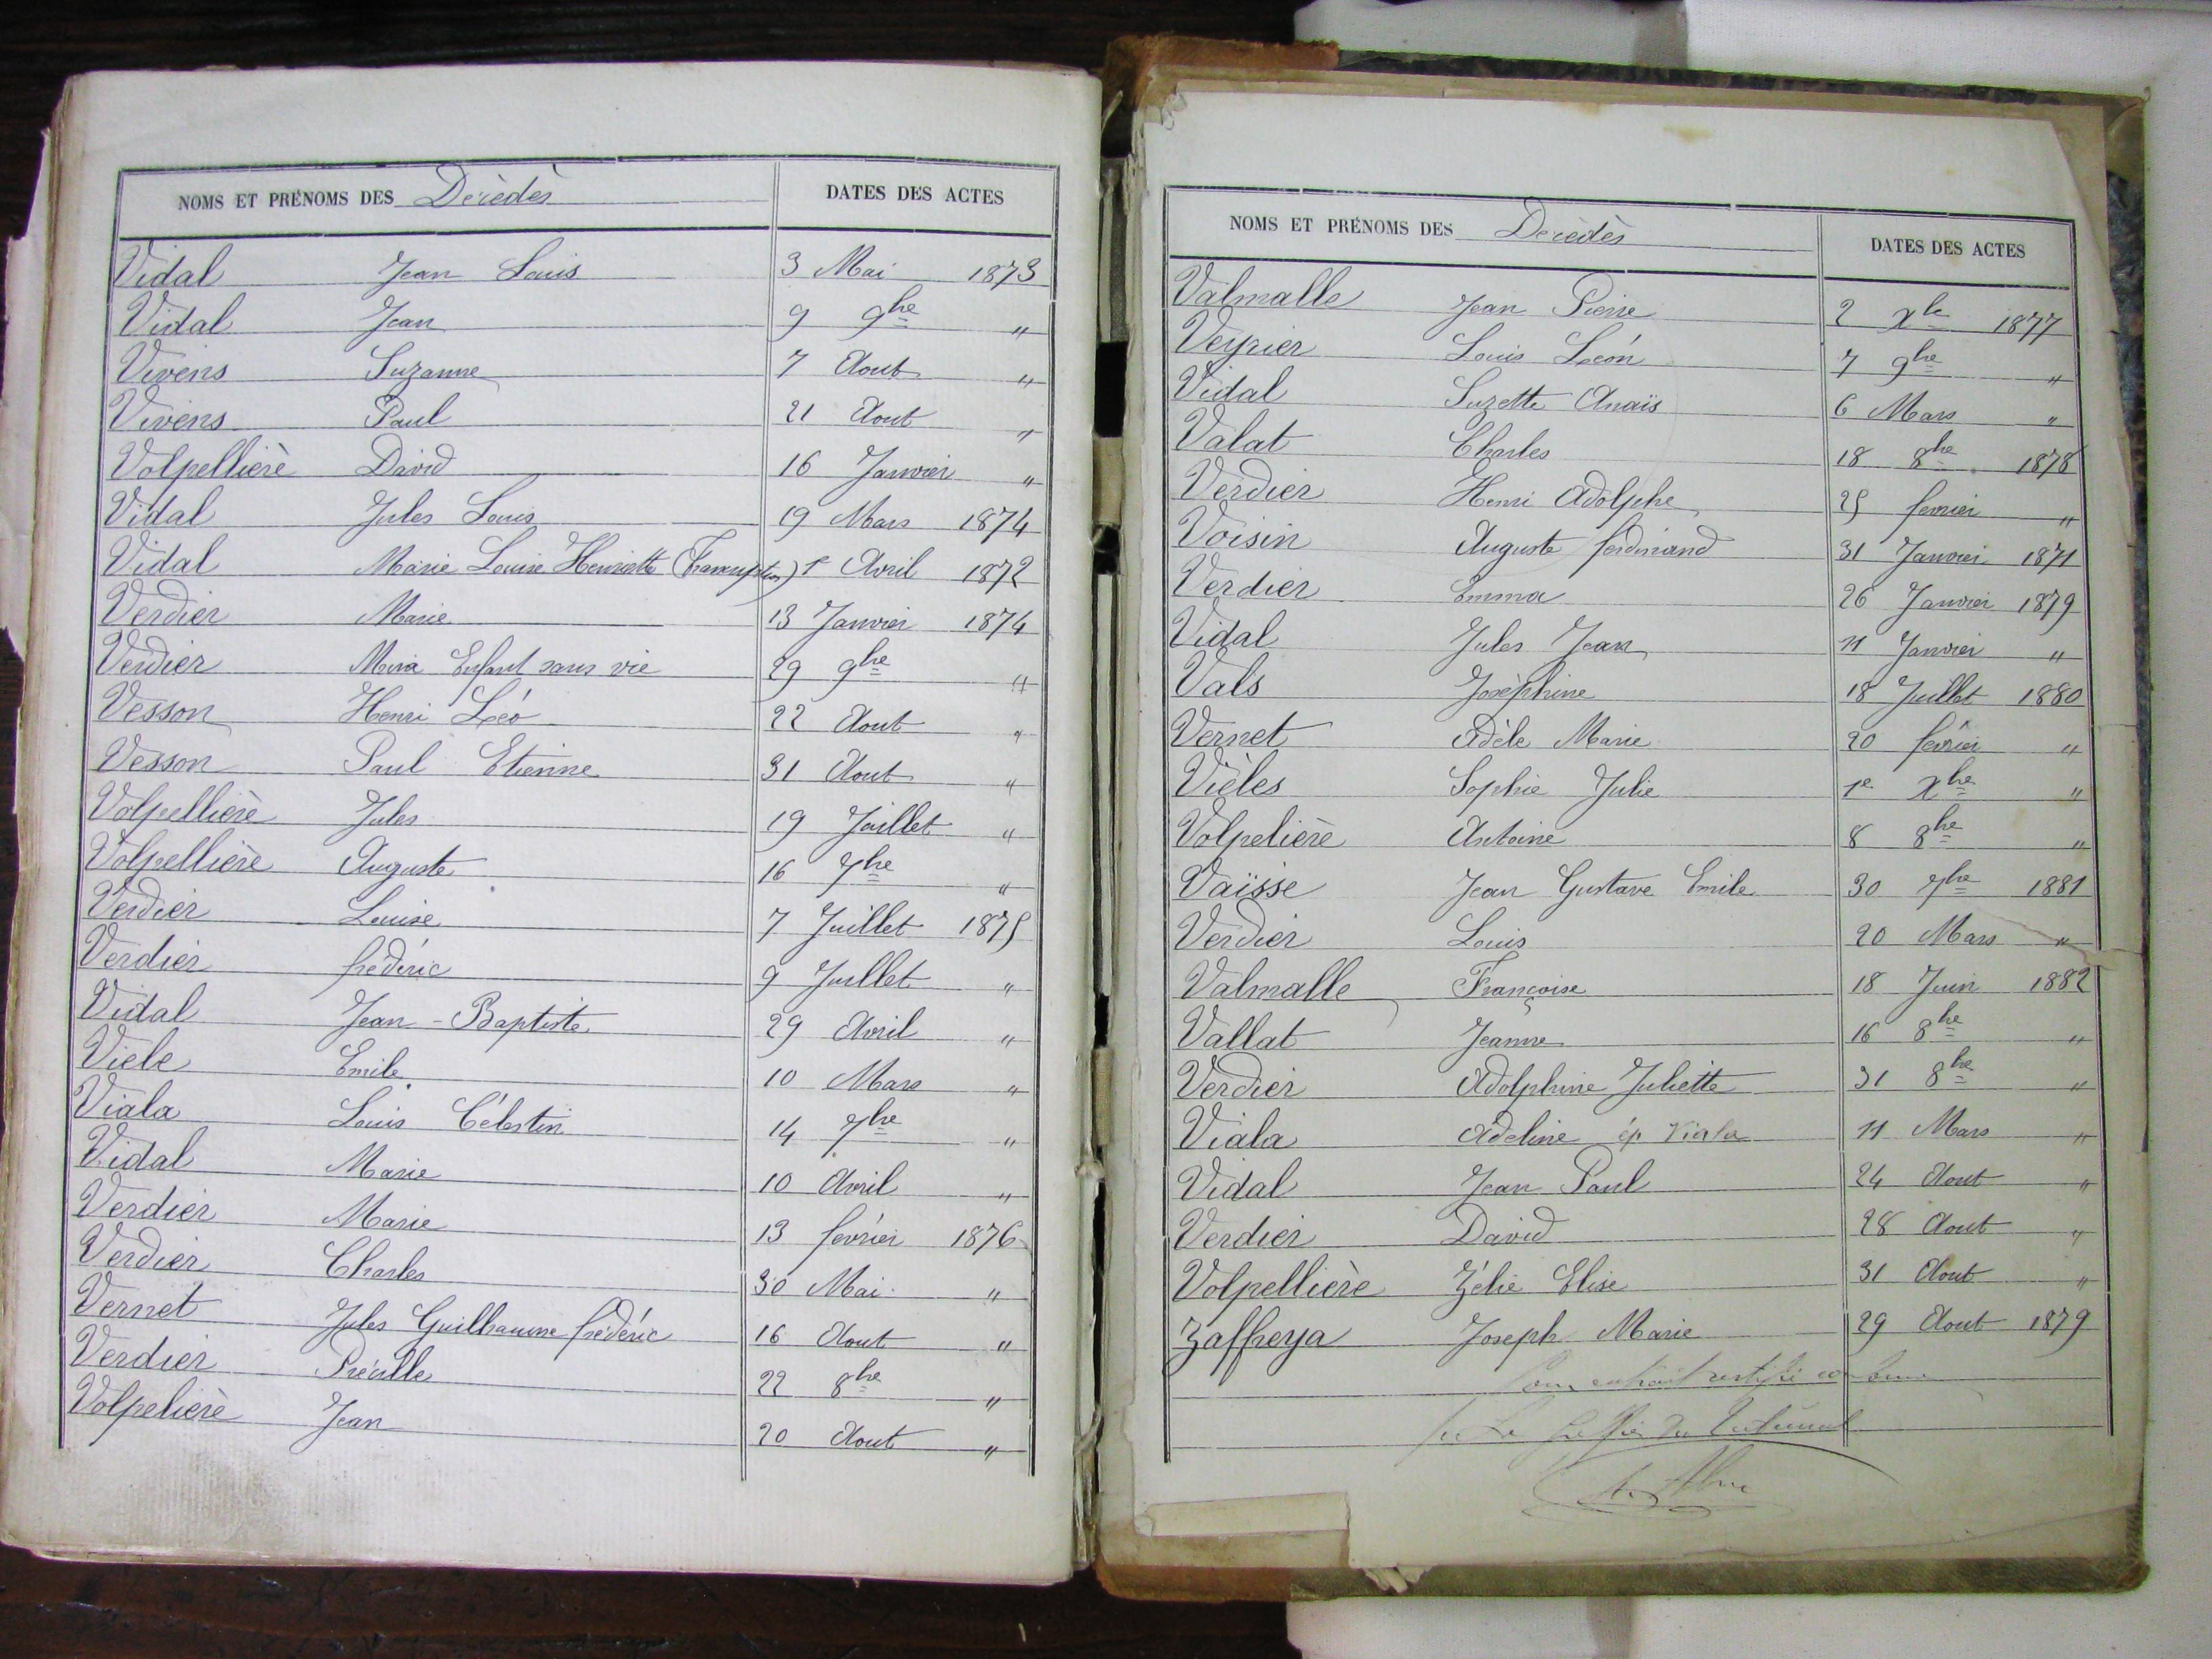 NOMS ET PRÉNOMS DES Décédés DATES DES ACTES
Vidal Jean Louis 3 Mai 1873
Vidal Jean 9 9bre "
Vivens Suzanne 7 Aout "
Vivens Paul 21 Aout "
Volpellière David 16 Janvier "
Vidal Jules Louis 19 Mars 1874
Vidal Marie Louise Henriette (Transcription) 1r Avril 1872
Verdier Marie 13 Janvier 1874
Verdier Enfant sans vie 29 9bre "
Vesson Henri Léo 22 Aout "
Vesson Paul Etienne 31 Aout "
Volpellière Jules 19 Juillet "
Volpellière Auguste 16 7bre "
Verdier Louise 7 Juillet 1875
Verdier frédéric 9 Juillet "
Vidal Jean-Baptiste 29 Avril "
Vièle Emile 10 Mars "
Viala Louis Célestin 14 7bre "
Vidal Marie 10 Avril "
Verdier Marie 13 février 1876
Verdier Charles 30 Mai "
Vernet Jules Guilhaume frédéric 16 Aout "
Verdier 22 8bre "
Volpelière Jean 20 Aout "
NOMS ET PRÉNOMS DES Décédés DATES DES ACTES
Valmalle Jean Pierre 2 Xbre 1877
Veyrier Louis Léon 7 9bre "
Vidal Suzette Anaïs 6 Mars "
Valat Charles 18 8bre 1878
Verdier Henri Adolphe 25 fevrier "
Voisin Auguste ferdinand 31 Janvier 1871
Verdier Emma 26 Janvier 1879
Vidal Jules Jean 11 Janvier "
Vals Joséphine 18 Juillet 1880
Vernet Adèle Marie 20 février "
Vièles Sophie Julie 1e Xbre "
Volpelière Antoine 8 8bre "
Vaïsse Jean Gustave Emile 30 7bre 1881
Verdier Louis 20 Mars "
Valmalle Françoise 18 Juin 1882
Vallat Jeanne 16 8bre "
Verdier Adolphine Juliette 31 8bre "
Viala Adeline ép Viala 11 Mars "
Vidal Jean Paul 24 Aout "
Verdier David 28 Aout "
Volpellière Zélie Elise 31 Aout "
Zaffreya Joseph Marie 29 Aout 1879
Pour extrait certifié conforme
Le Greffier du Tribunal